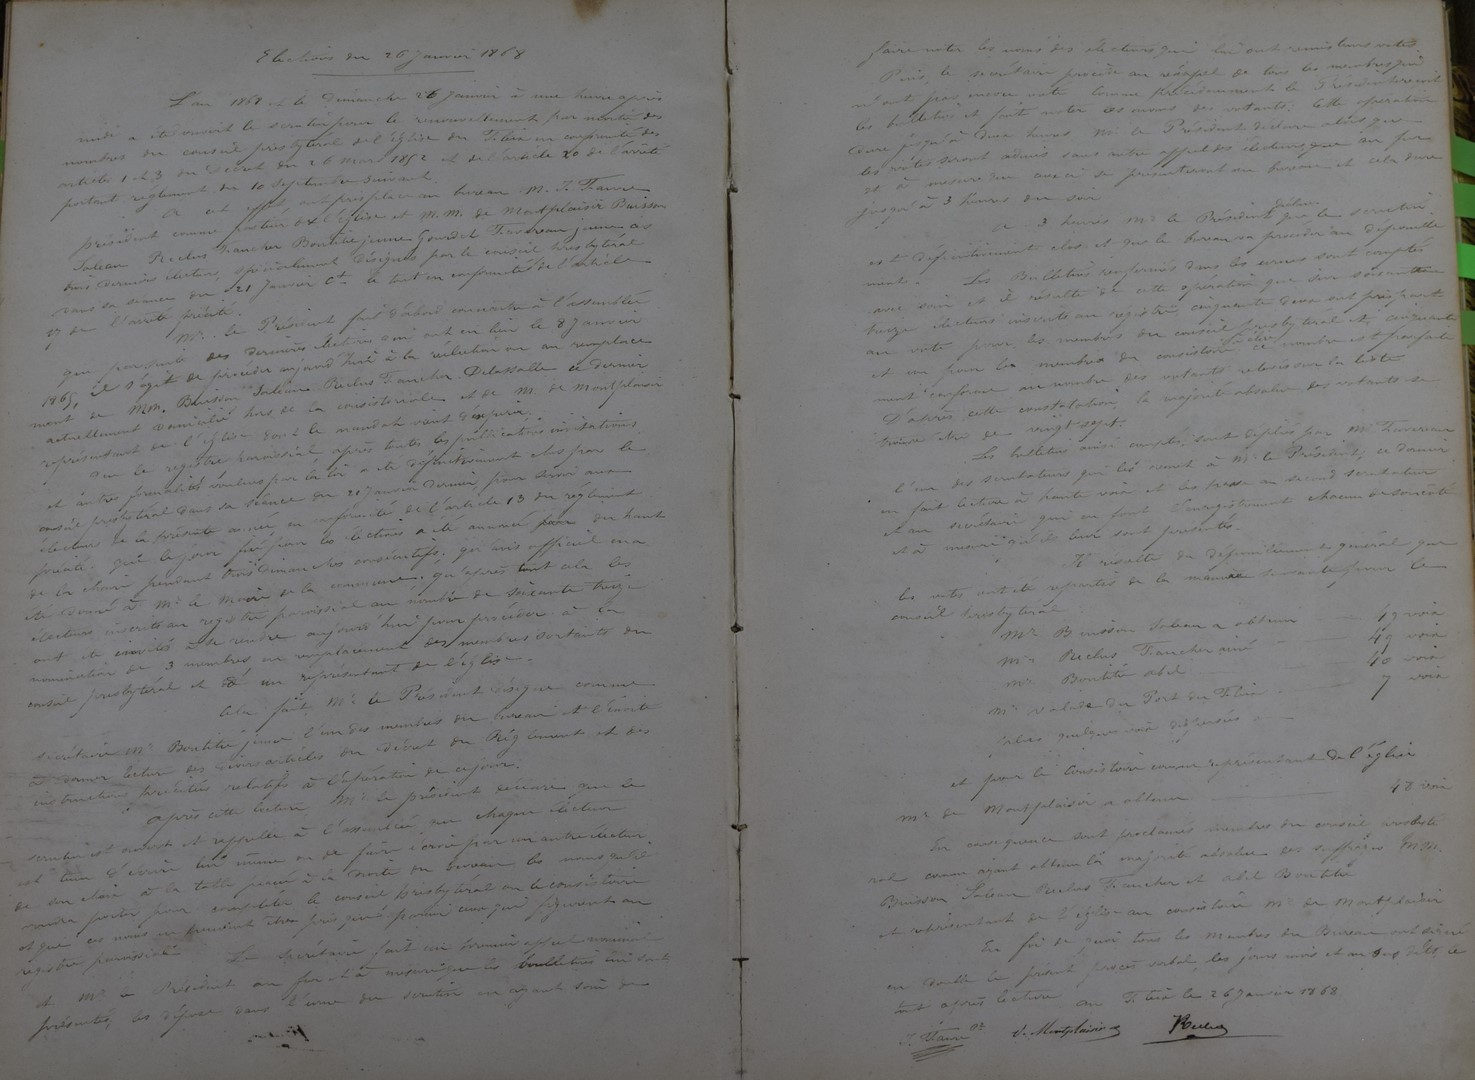 Elections du 26 Janvier 1868
L'an 1868 et le dimanche 26 Janvier à une heure après
midi a été ouvert le scrutin pour le renouvellement par moitié des
membres du conseil presbytéral de l'Eglise du Fleix en conformité des
articles 1 et 3 du Décret du 26 Mars 1852 et de l'article 20 de l'arrêté
portant règlement du 10 Septembre suivant.
A cet effet ont pris place au bureau M. J. Favre
président comme pasteur de l'Eglise et M.M. de Montplaisir Buisson
Saleau Reclus Faucher Bontité jeune Gourdet Favereau jeune ces
trois derniers électeurs, spécialement désignés par le conseil presbytéral
dans sa séance du 21 Janvier Ct le tout en conformité de l'article
17 de l'arrêté précité.
Mr. le Président fait d'abord connaître à l'assemblée
que par suite des dernières élections qui ont eu lieu le 8 Janvier
1865, il s'agit de procéder aujourd'hui à la réélection ou au remplace
ment de MM. Buisson Saleau Reclus Faucher Delassalle ce dernier
actuellement domicilié hors de la consistoriale et de M. de Montplaisir
représentant de l'église dont le mandat vient d'expirer.
Que le registre paroissial, après toutes les publications invitations
et autres formalités voulues par la loi a été définitivement clos par le
conseil presbytéral dans sa séance du 21 Janvier dernier pour servir aux
élections de la présente année en conformité de l'article 13 du règlement
précité. que le jour fixé pour les élections a été annoncé du haut
de la chaire pendant trois dimanches consécutifs; qu'avis officiel en a
été donné à Mr le Maire de la commune, qu'après tout cela les
électeurs inscrits au registre paroissial au nombre de soixante treize
ont été invités à se rendre aujourd'hui pour procéder à la
nomination de 3 membres en remplacement des membres sortants du
conseil presbytéral et d'un représentant de l'église.
Cela fait Mr le Président désigne comme
secrétaire Mr Bontité jeune l'un des membres du bureau et l'invite
à donner lecture des divers articles du décret du Règlement et des
instructions précitées relatifs à l'opération de ce jour.
Après cette lecture Mr le président déclare que le
scrutin est ouvert et rappelle à l'assemblée que chaque électeur
est tenu d'écrire lui même ou de faire écrire par un autre électeur
de son choix à la table placée à la droite du bureau les noms qu'il
voudra porter pour compléter le conseil presbytéral ou le consistoire
et que ces noms ne peuvent être pris que parmi ceux qui figurent au
registre paroissial.
Le secrétaire fait un premier appel nominal
et Mr le Président au fur et à mesure que les bulletins lui sont
présentés, les dépose dans l'urne du scrutin en ayant soin de
faire noter les noms des électeurs qui lui ont remis leurs votes.
Puis, le secrétaire procède au réappel de tous les membres qui
n'ont pas encore voté comme précédemment le Président reçoit
les bulletins et fait noter les noms des votants. Cette opération
dure jusqu'à deux heures Mr le Président déclare alors que
les votes seront admis sans autre appel des électeurs que au fur
et à mesure que ceux-ci se présenteront au bureau et cela dure
jusqu'à 3 heures du soir
A 3 heures Mr le Président déclare que le scrutin
est définitivement clos et que le bureau va procéder au dépouille
ment. Les Bulletins renfermés dans les urnes sont comptés
avec soin et il résulte de cette opération que sur soixante
treize électeurs inscrits au registre, cinquante deux ont pris part
au vote pour les membres du conseil presbytéral et cinquante
et un pour le membre du consistoire ce nombre est parfaite
ment conforme au nombre des votants relevés sur la liste
D'après cette constatation, la majorité absolue des votants se
trouve être de vingt sept.
Les bulletins ainsi comptés, sont dépliés par Mr Favereau
l'un des scrutateurs qui les remet à Mr le Président; ce dernier
en fait lecture à haute voix et les passe au second scrutateur
et au secrétaire qui en font l'enregistrement chacun de son côté
et à mesure qu'ils leur sont présentés.
Il résulte du dépouillement général que
les votes ont été répartis de la manière suivante pour le
conseil presbytéral
Mr Buisson Saleau a obtenu 49 voix
Mr Reclus Faucher ainé 49 voix
Mr Bontité abel 40 voix
Mr Valade du Port du Fleix 7 voix
plus quelques voix dispersées
et pour le Consistoire comme représentant de l'Eglise
Mr de Montplaisir a obtenu 48 voix
En conséquence sont proclamés membres du conseil presbyté
ral comme ayant obtenu la majorité absolue des suffrages MM.
Buisson Saleau Reclus Faucher et Abel Bontité
et représentant de l'église au consistoire Mr de Montplaisir
En foi de quoi tous les Membres du Bureau ont signé
en double le présent procès verbal, les jours mois et an que dessus le
tout après lecture au Fleix le 26 Janvier 1868
J. Favre pr V. Montplaisir Reclus